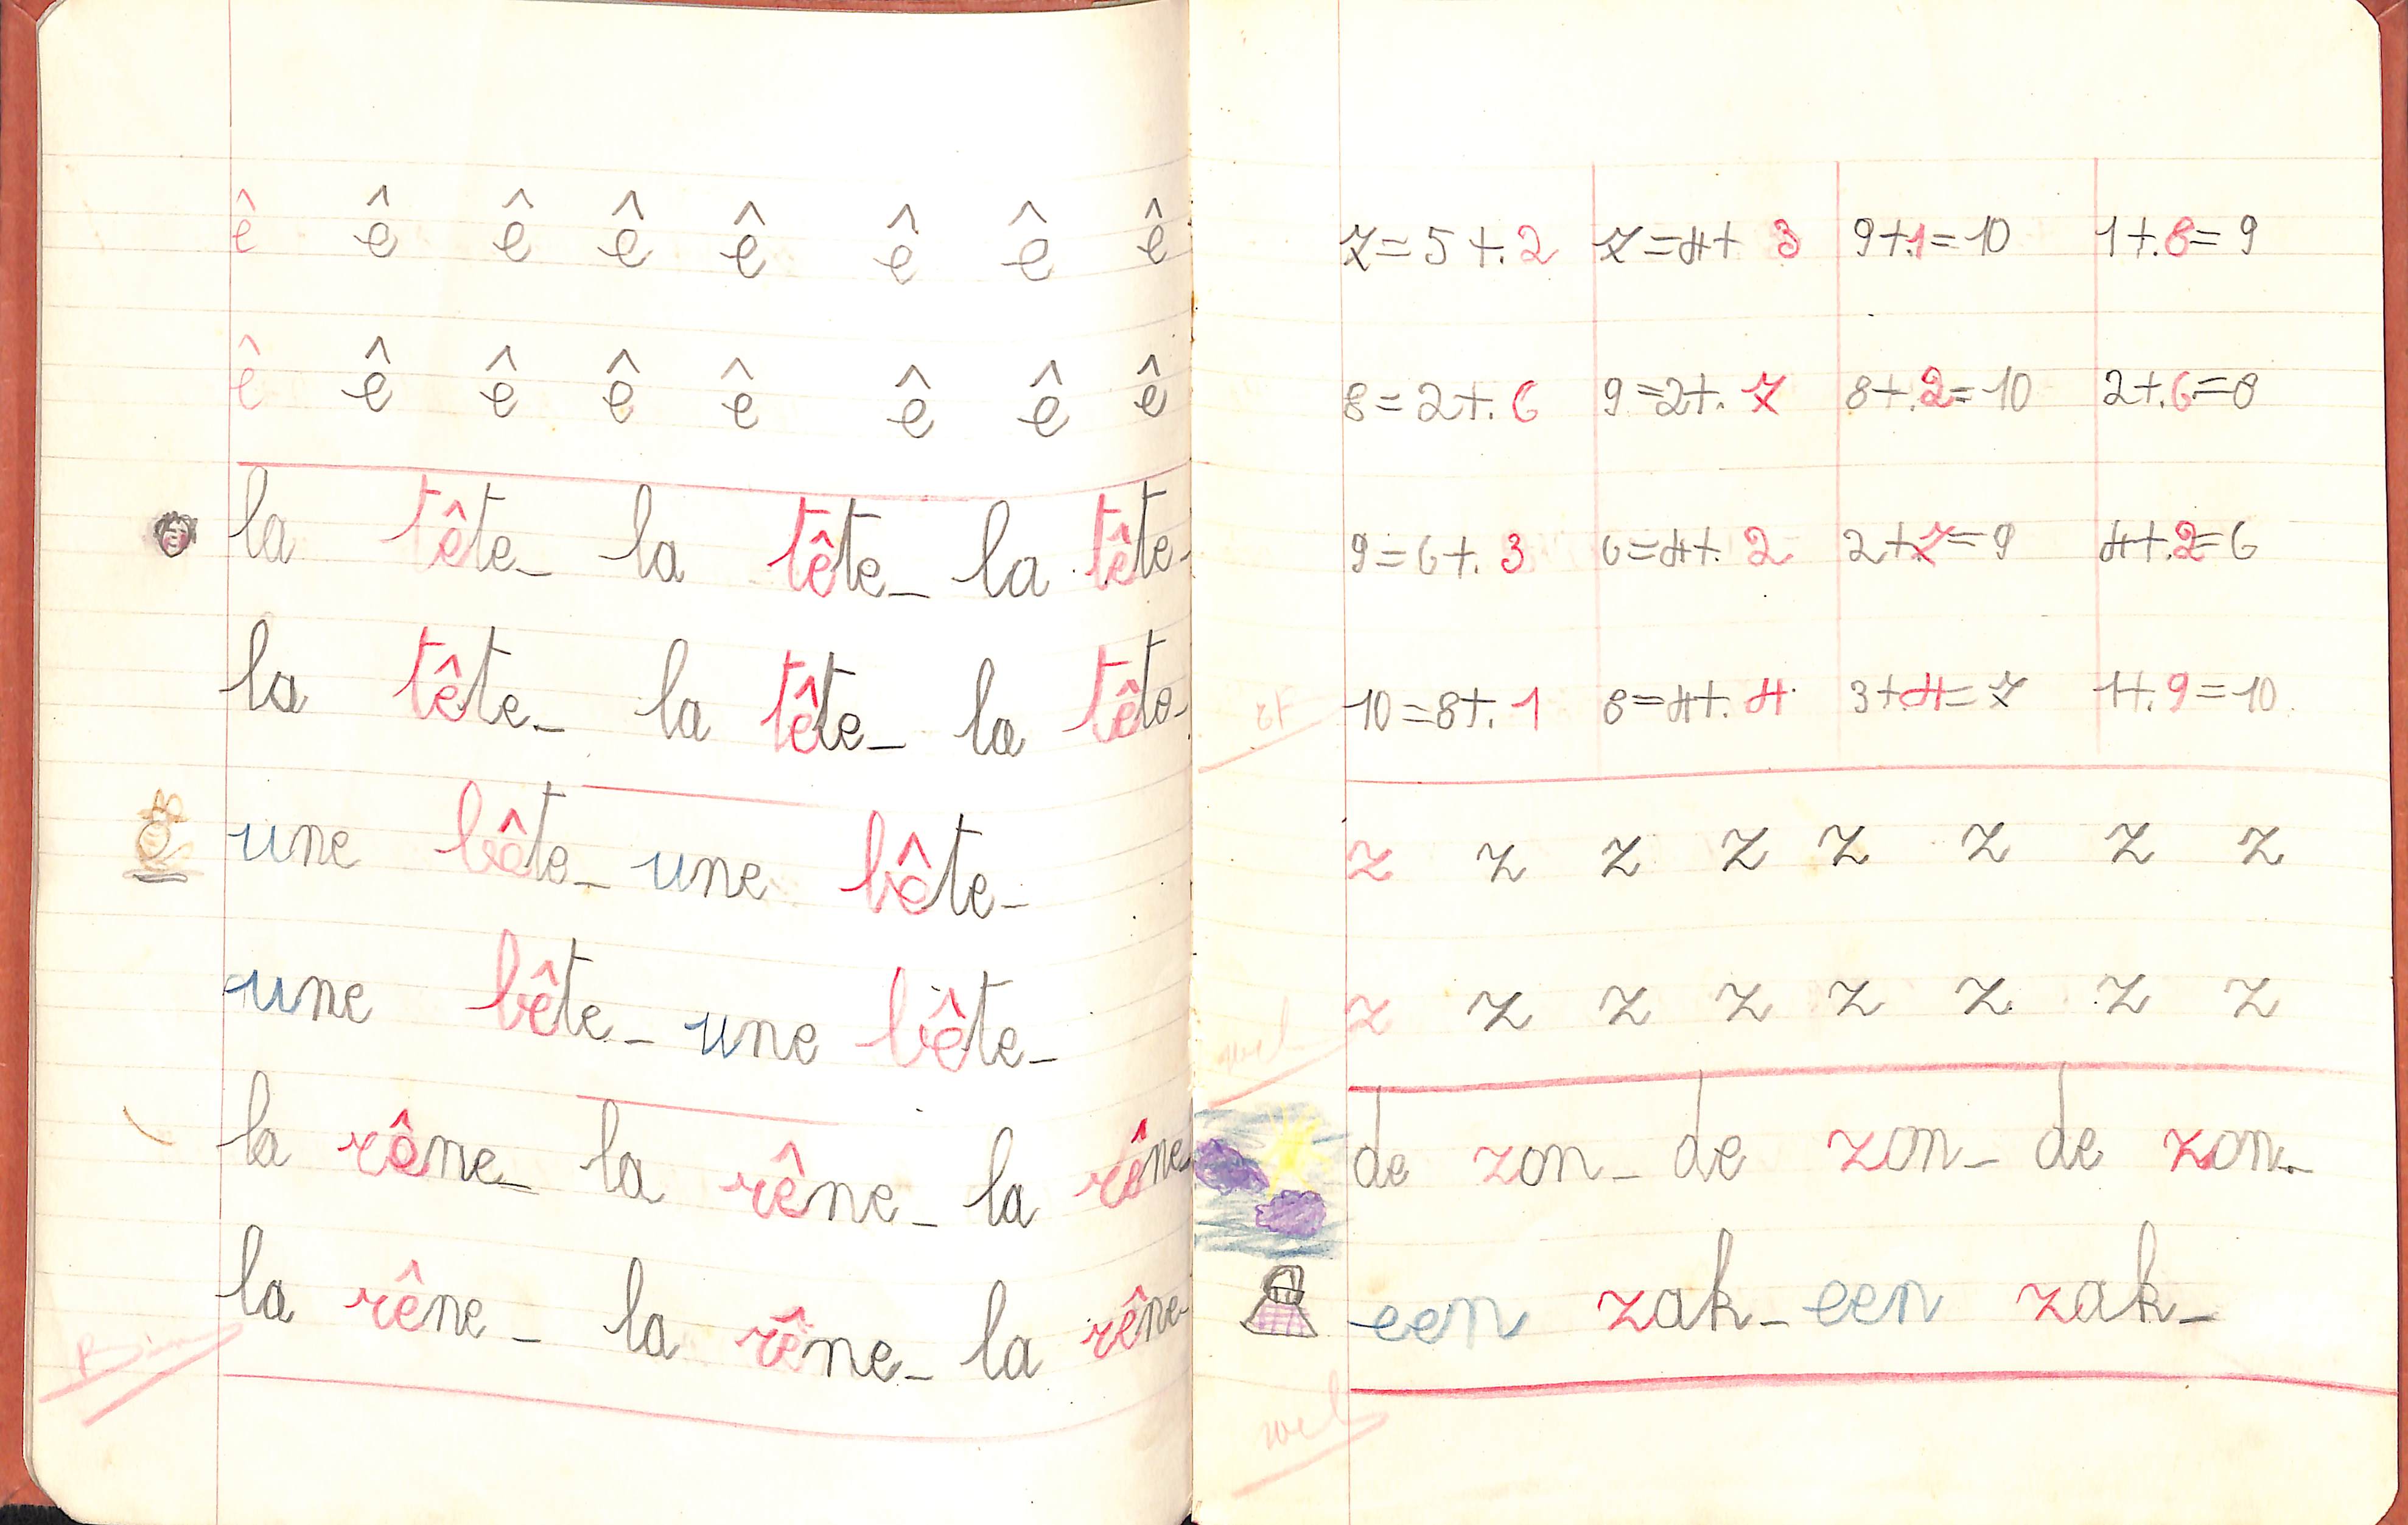 ê ê ê ê ê ê ê ê
ê ê ê ê ê ê ê ê
la tête_ la tête_ la tête_
la tête_ la tête_ la tête_
une bête_ une bête_
une bête_ une bête_
la rêne_ la rêne_ la rêne_
la rêne_ la rêne_ la rêne_
Bien
7=5+.2 7=4+ 3 9+.1=10 1+.8=9
8=2+.6 9=2+.7 8+.2=10 2+.6=8
9=6+.3 6=4+.2 2+7=9 4+.2=6
10=8+.1 8=4+.4 3+4=7 1+.9=10
z z z z z z z z
z z z z z z z z
wel
de zon_ de zon_ de zon_
een zak_ een zak_
wel